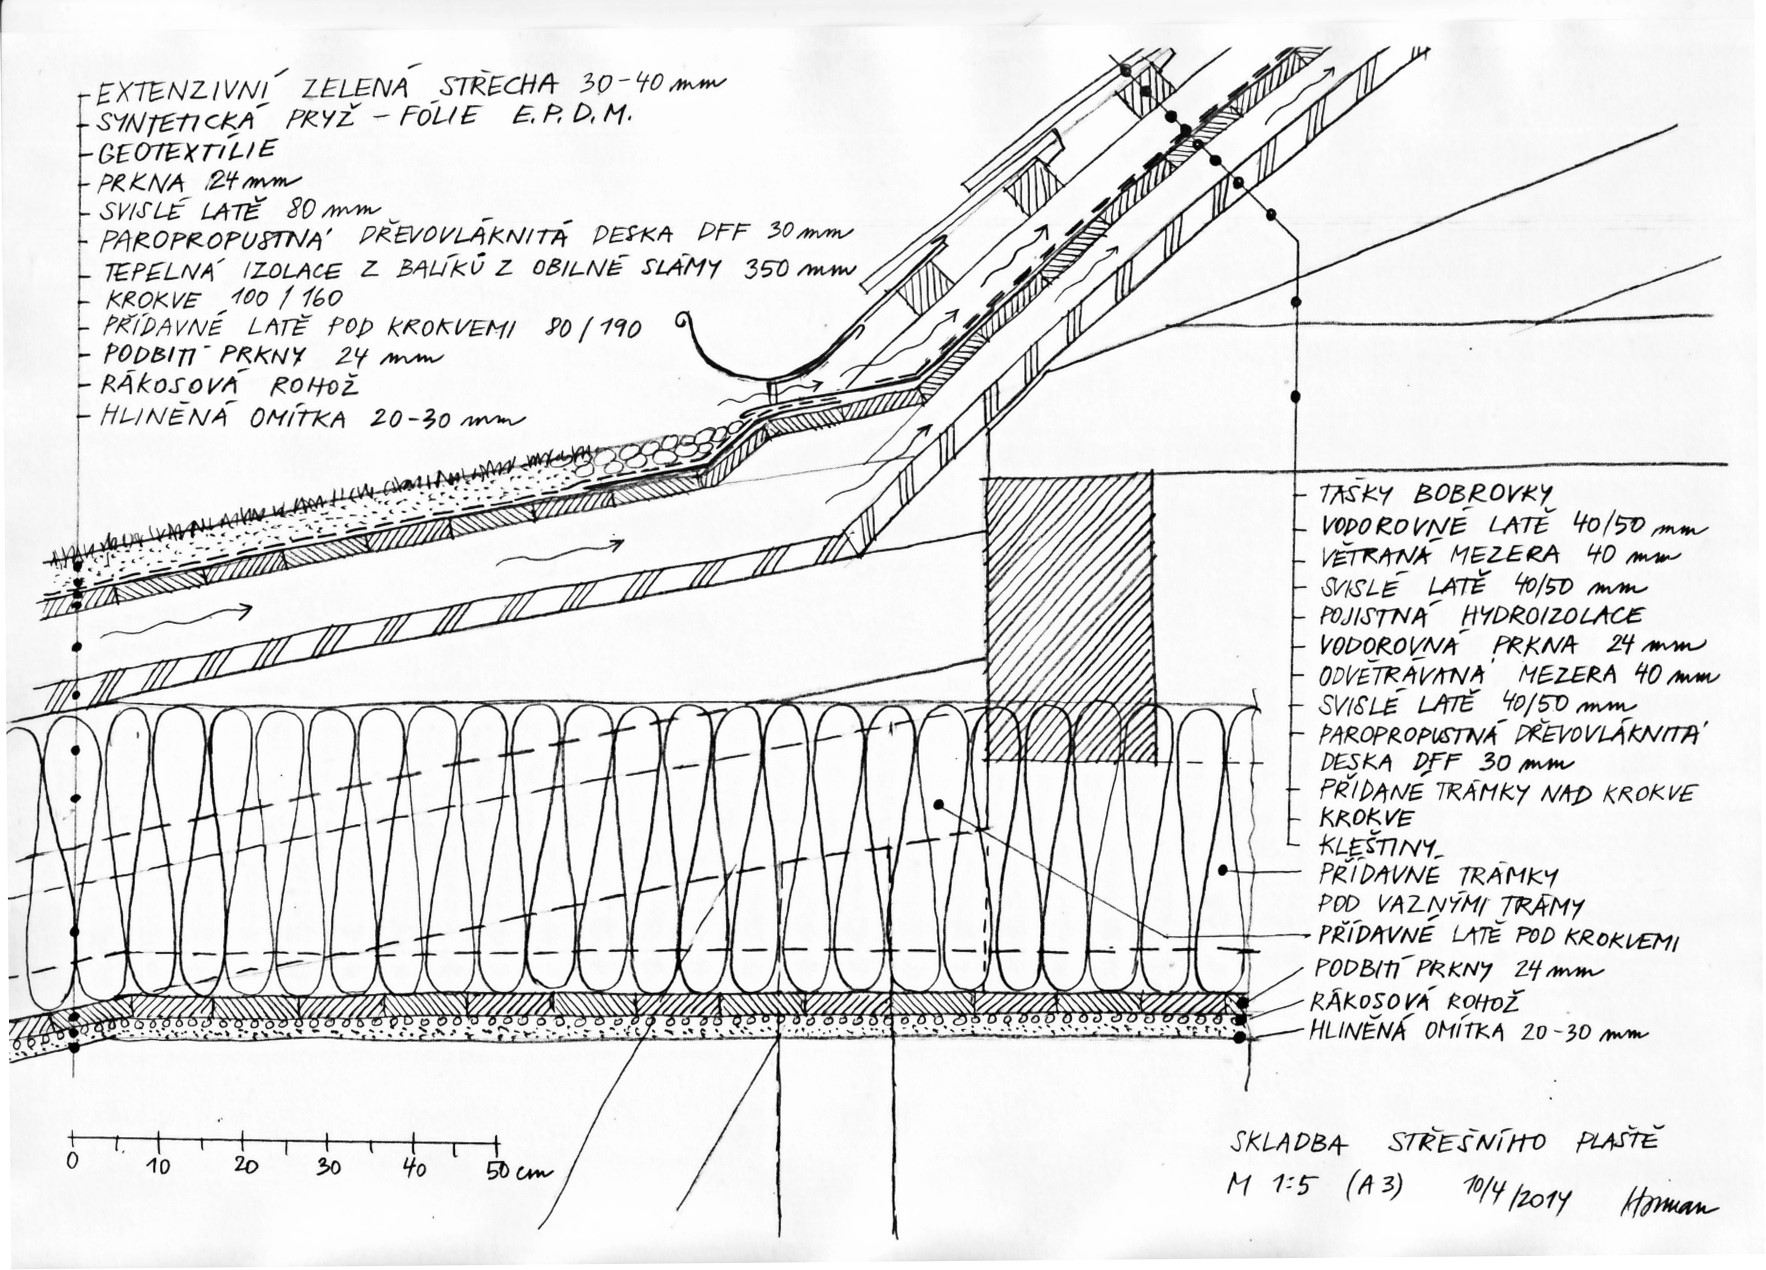 EXTENZIVNÍ ZELENÁ STŘECHA 30-40 mm
SYNTETICKÁ PRYŽ - FÓLIE E.P.D.M.
GEOTEXTÍLIE
PRKNA 24 mm
SVISLÉ LATĚ 80 mm
PAROPROPUSTNÁ DŘEVOVLÁKNITÁ DESKA DFF 30 mm
TEPELNÁ IZOLACE Z BALÍKŮ Z OBILNÉ SLÁMY 350 mm
KROKVE 100 / 160
PŘÍDAVNÉ LATĚ POD KROKVEMI 80 / 190
PODBITÍ PRKNY 24 mm
RÁKOSOVÁ ROHOŽ
HLINĚNÁ OMÍTKA 20-30 mm
TAŠKY BOBROVKY
VODOROVNÉ LATĚ 40/50 mm
VĚTRANÁ MEZERA 40 mm
SVISLÉ LATĚ 40/50 mm
POJISTNÁ HYDROIZOLACE
VODOROVNÁ PRKNA 24 mm
ODVĚTRÁVANÁ MEZERA 40 mm
SVISLÉ LATĚ 40/50 mm
PAROPROPUSTNÁ DŘEVOVLÁKNITÁ
DESKA DFF 30 mm
PŘÍDANÉ TRÁMKY NAD KROKVE
KROKVE
KLEŠTINY
PŘÍDAVNÉ TRÁMKY
POD VAZNÝMI TRÁMY
PŘÍDAVNÉ LATĚ POD KROKVEMI
PODBITÍ PRKNY 24 mm
RÁKOSOVÁ ROHOŽ
HLINĚNÁ OMÍTKA 20-30 mm
0 10 20 30 40 50 cm
SKLADBA STŘEŠNÍHO PLÁŠTĚ
M 1:5 (A3) 10/4/2014